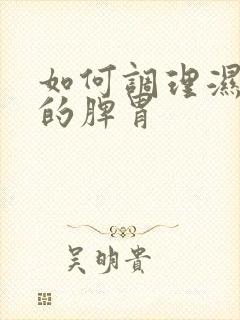 如何調理濕
的脾胃
吳明貴